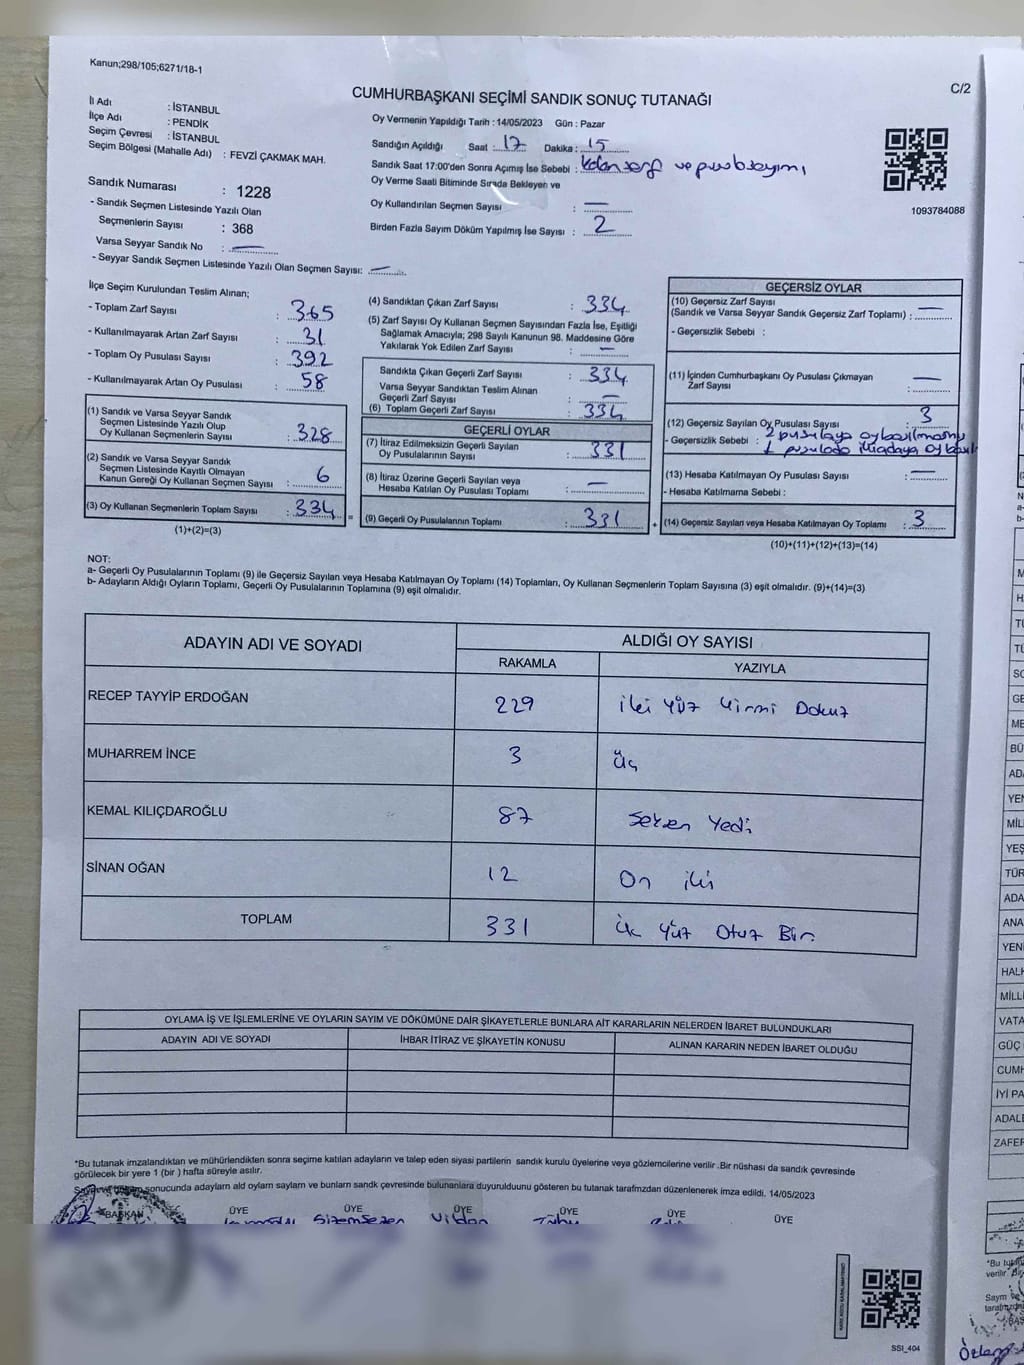 Kanun;298/105;6271/18-1
C/2
CUMHURBAŞKANI SEÇİMİ SANDIK SONUÇ TUTANAĞI
İl Adı : İSTANBUL
İlçe Adı : PENDİK
Seçim Çevresi : İSTANBUL
Seçim Bölgesi (Mahalle Adı) : FEVZİ ÇAKMAK MAH.
Oy Vermenin Yapıldığı Tarih : 14/05/2023 Gün : Pazar
Sandığın Açıldığı Saat : 17 Dakika : 15
Sandık Saat 17:00'den Sonra Açımış İse Sebebi : kalan zarf ve pusula sayımı
Oy Verme Saati Bitiminde Sırada Bekleyen ve
Oy Kullandırılan Seçmen Sayısı : —
Birden Fazla Sayım Döküm Yapılmış İse Sayısı : 2
1093784088
Sandık Numarası : 1228
- Sandık Seçmen Listesinde Yazılı Olan
Seçmenlerin Sayısı : 368
Varsa Seyyar Sandık No : —
- Seyyar Sandık Seçmen Listesinde Yazılı Olan Seçmen Sayısı: —
İlçe Seçim Kurulundan Teslim Alınan;
- Toplam Zarf Sayısı : 365
- Kullanılmayarak Artan Zarf Sayısı : 31
- Toplam Oy Pusulası Sayısı : 392
- Kullanılmayarak Artan Oy Pusulası : 58
(1) Sandık ve Varsa Seyyar Sandık
Seçmen Listesinde Yazılı Olup
Oy Kullanan Seçmenlerin Sayısı : 328
(2) Sandık ve Varsa Seyyar Sandık
Seçmen Listesinde Kayıtlı Olmayan
Kanun Gereği Oy Kullanan Seçmen Sayısı : 6
(3) Oy Kullanan Seçmenlerin Toplam Sayısı : 334
(1)+(2)=(3)
(4) Sandıktan Çıkan Zarf Sayısı : 334
(5) Zarf Sayısı Oy Kullanan Seçmen Sayısından Fazla İse, Eşitliği
Sağlamak Amacıyla; 298 Sayılı Kanunun 98. Maddesine Göre
Yakılarak Yok Edilen Zarf Sayısı : —
Sandıkta Çıkan Geçerli Zarf Sayısı : 334
Varsa Seyyar Sandıktan Teslim Alınan
Geçerli Zarf Sayısı : —
(6) Toplam Geçerli Zarf Sayısı : 334
GEÇERLİ OYLAR
(7) İtiraz Edilmeksizin Geçerli Sayılan
Oy Pusulalarının Sayısı : 331
(8) İtiraz Üzerine Geçerli Sayılan veya
Hesaba Katılan Oy Pusulası Toplamı : —
(9) Geçerli Oy Pusulalarının Toplamı : 331
GEÇERSİZ OYLAR
(10) Geçersiz Zarf Sayısı
(Sandık ve Varsa Seyyar Sandık Geçersiz Zarf Toplamı) : —
- Geçersizlik Sebebi :
(11) İçinden Cumhurbaşkanı Oy Pusulası Çıkmayan
Zarf Sayısı : —
(12) Geçersiz Sayılan Oy Pusulası Sayısı : 3
- Geçersizlik Sebebi : 2 pusulaya oy basılmamış
1 pusulada iki adaya oy
(13) Hesaba Katılmayan Oy Sayısı : —
- Hesaba Katılmama Sebebi :
(14) Geçersiz Sayılan veya Hesaba Katılmayan Oy Toplamı : 3
(10)+(11)+(12)+(13)=(14)
NOT:
a- Geçerli Oy Pusulalarının Toplamı (9) ile Geçersiz Sayılan veya Hesaba Katılmayan Oy Toplamı (14) Toplamları, Oy Kullanan Seçmenlerin Toplam Sayısına (3) eşit olmalıdır. (9)+(14)=(3)
b- Adayların Aldığı Oyların Toplamı, Geçerli Oy Pusulalarının Toplamına (9) eşit olmalıdır.
ADAYIN ADI VE SOYADI
ALDIĞI OY SAYISI
RAKAMLA YAZIYLA
RECEP TAYYİP ERDOĞAN 229 iki yüz yirmi Dokuz
MUHARREM İNCE 3 üç
KEMAL KILIÇDAROĞLU 87 seksen Yedi
SİNAN OĞAN 12 On iki
TOPLAM 331 üç yüz Otuz Bir
OYLAMA İŞ VE İŞLEMLERİNE VE OYLARIN SAYIM VE DÖKÜMÜNE DAİR ŞİKAYETLERLE BUNLARA AİT KARARLARIN NELERDEN İBARET BULUNDUKLARI
ADAYIN ADI VE SOYADI İHBAR İTİRAZ VE ŞİKAYETİN KONUSU ALINAN KARARIN NEDEN İBARET OLDUĞU
*Bu tutanak imzalandıktan ve mühürlendikten sonra seçime katılan adayların ve talep eden siyasi partilerin sandık kurulu üyelerine veya gözlemcilerine verilir .Bir nüshası da sandık çevresinde
görülecek bir yere 1 (bir ) hafta süreyle asılır.
sonucunda adayların ald oyların sayların ve bunların sandk çevresinde bulunanlara duyurulduunu gösteren bu tutanak tarafmzdan düzenlenerek imza edildi. 14/05/2023
BAŞKAN ÜYE ÜYE ÜYE ÜYE ÜYE ÜYE
SSI_404
TÜ
TÜ
SO
GE
ME
BÜ
ADA
YEN
MİL
YEŞ
TÜR
ADA
ANA
YENİ
HALK
MİLLİ
VATA
GÜÇ
CUMH
İYİ PA
ADALE
ZAFER
*Bu
verilir.
Sayım ve
Özlem